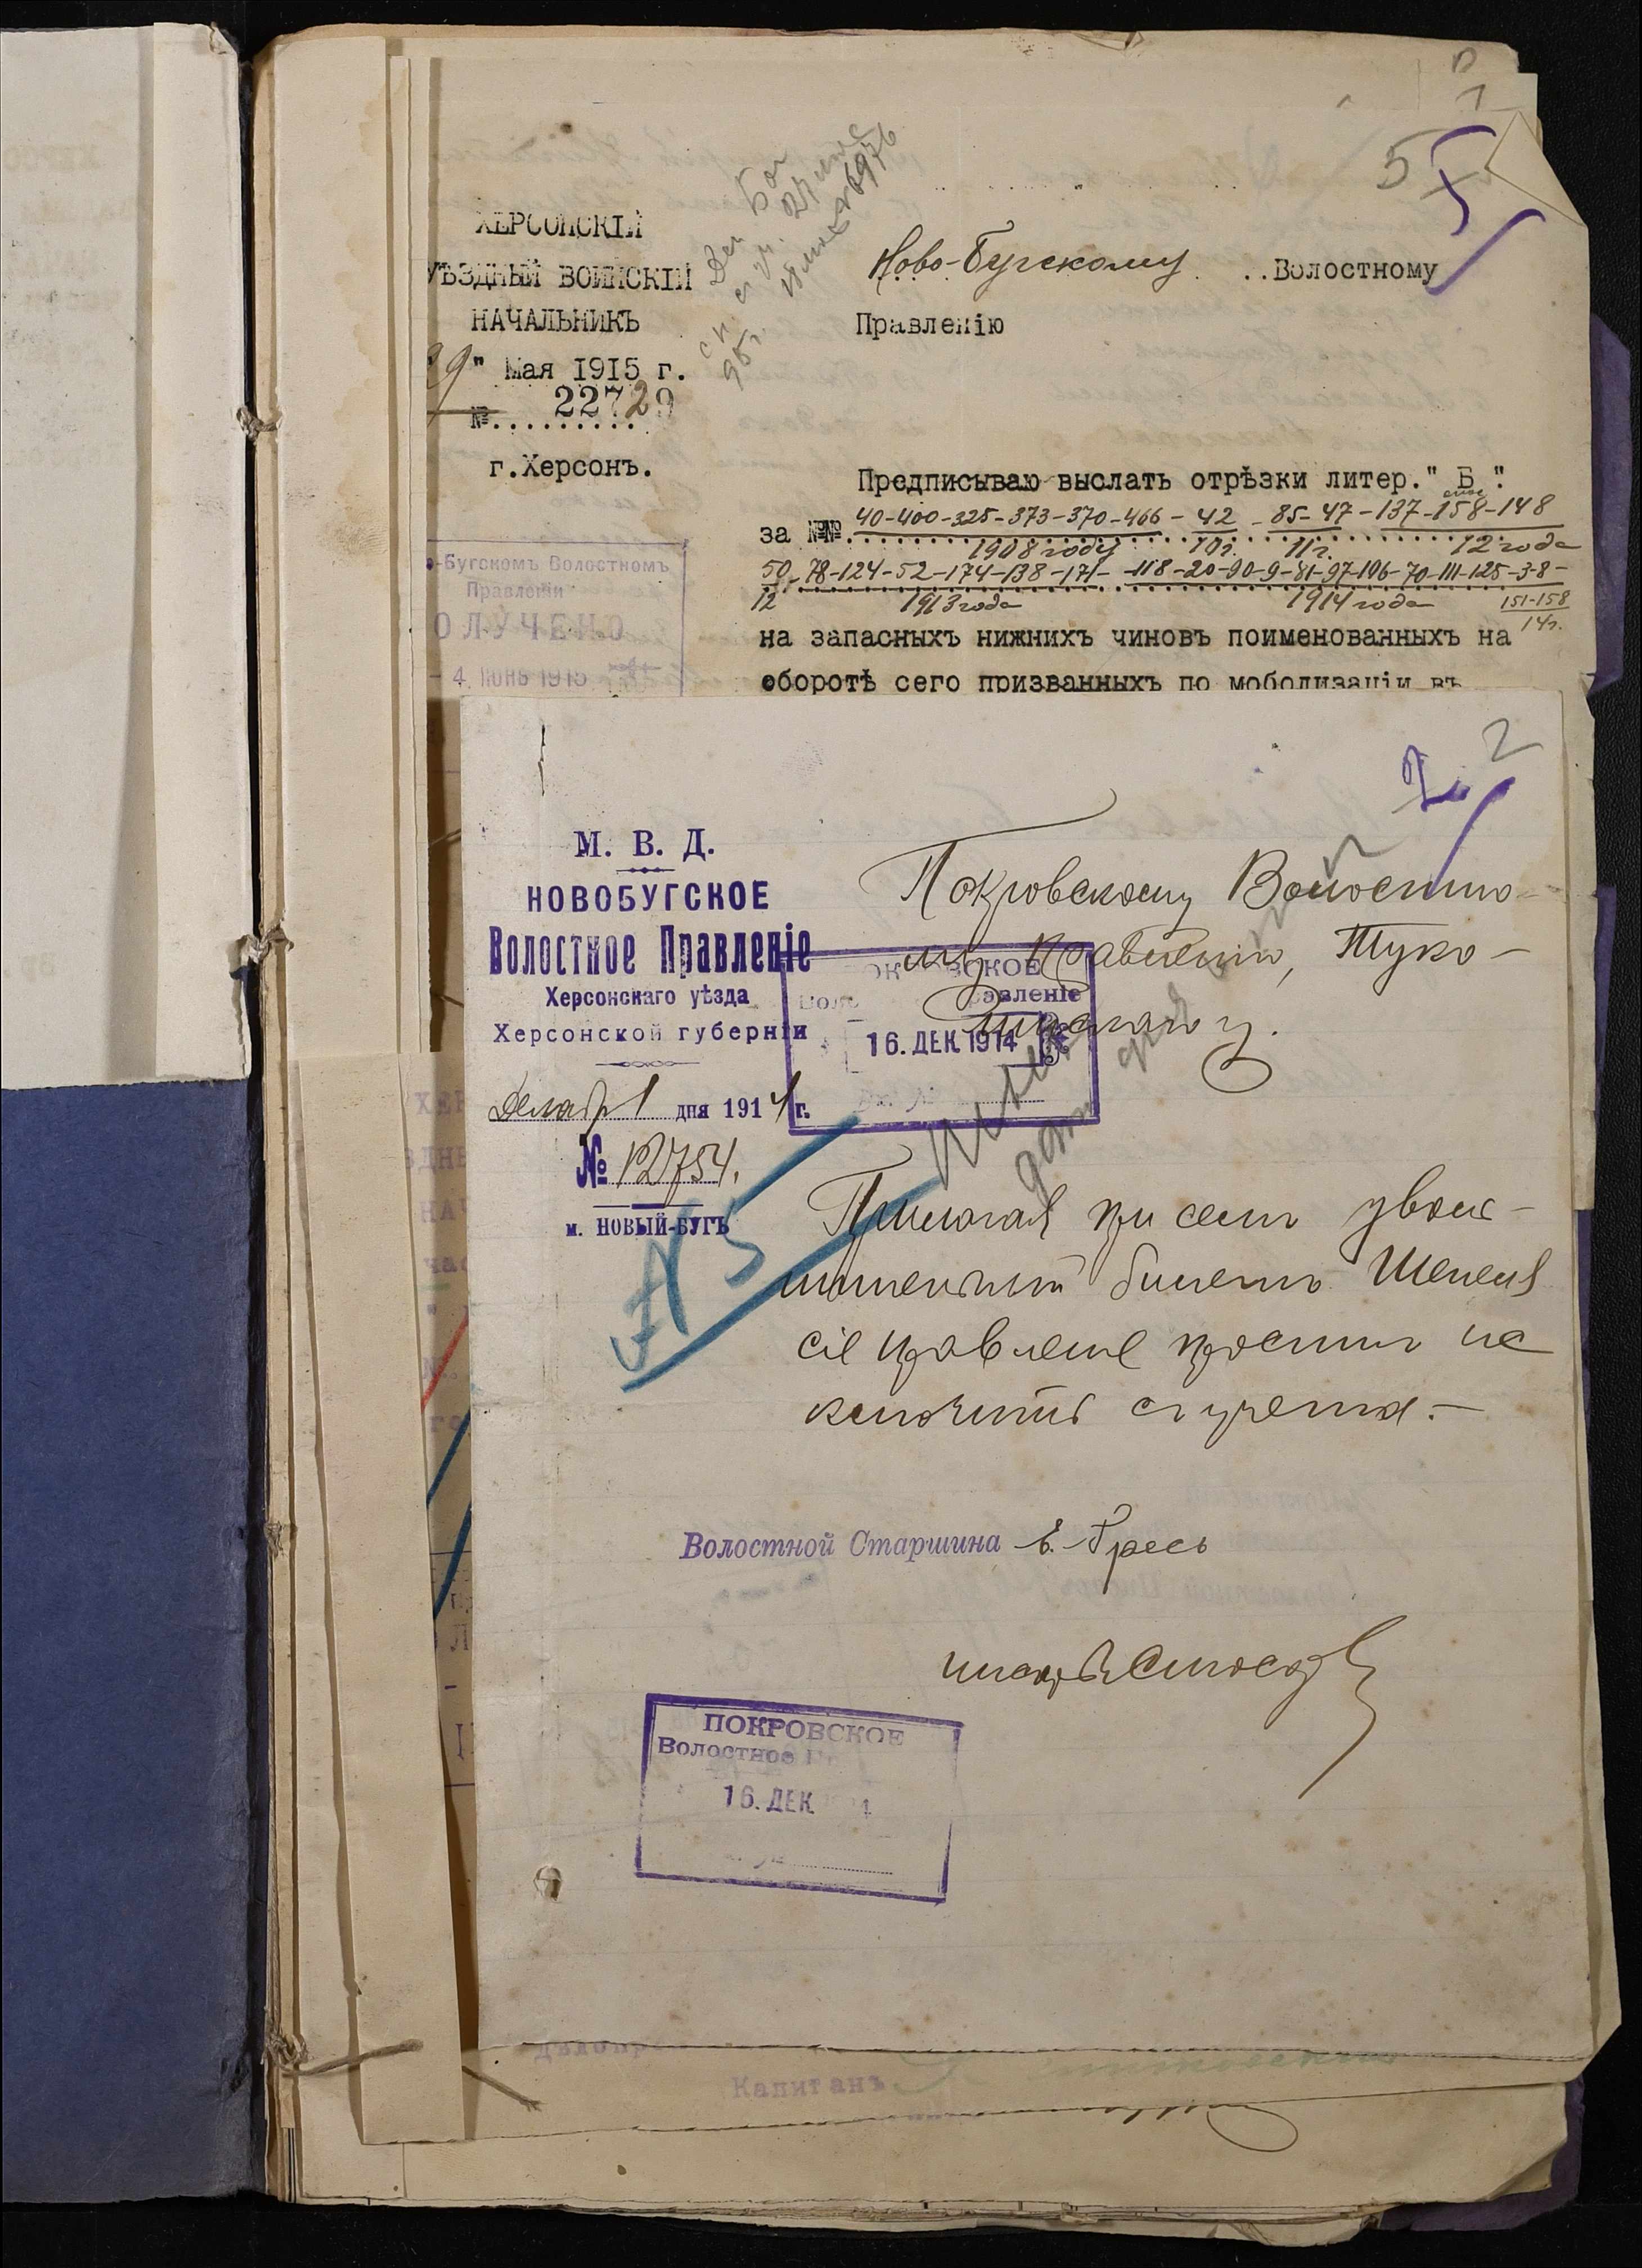 1
5
ХЕРСОНСКІЙ
УѢЗДНЫЙ ВОИНСКІЙ
НАЧАЛЬНИКЪ
29" Мая 1915 г.
№ 22729
г.Херсонъ.
Ново-Бугскому Волостному
Правленію
Предписываю выслать отрѣзки литер." Б "
за №№ 40-400-325-373-370-466-42-85-47-137-158-148
1908 году 10г. 11г. 12 года
50-78-124-52-174-138-171-118-20-90-9-81-97-106-70-111-125-3-8-
12 1913 года 1914 года 151-158
14г.
на запасныхъ нижнихъ чиновъ поименованныхъ на
оборотѣ сего призванныхъ по моболизаціи въ
-Бугскомъ Волостномъ
Правленіи
ОЛУЧЕНО
4 ІЮНЬ 1915
2
М. В. Д.
НОВОБУГСКОЕ
Волостное Правленіе
Херсонскаго уѣзда
Херсонской губерніи
Декабр 1 дня 1914 г.
№ 12754.
м. НОВЫЙ-БУГЪ
Покровскому Волостно-
му Правленію,
16. ДЕК. 1914
Прилагая при семъ уволь-
нительный билетъ Шепеля
сіе правленіе проситъ ис
ключить съ учета.—
Волостной Старшина Е. Гресь
писарь
ПОКРОВСКОЕ
Волостное
16. ДЕК
Капитанъ